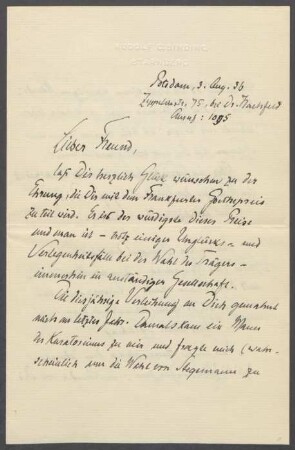 Potsdam, 3. Aug. 36
75, bei Dr.
Lieber Freund,
laß Dir herzlich Glück wünschen zu der
Ehrung, die Dir mit dem Frankfurter Goethepreis
zuteil wird. Er ist der würdigste dieser Preise
und man ist – trotz einiger Unglücks- und
Verlegenheitsfälle bei der Wahl des Trägers –
immerhin in anständiger Gesellschaft.
Die diesjährige Verleihung an Dich gemahnt
mich an letztes Jahr. Damals kam ein Mann
des Kuratoriums zu mir und fragte mich (wahr-
scheinlich um die Wahl von Stegemann zu